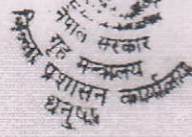 नेपाल सरकार
गृह मन्त्रालय
जिल्ला प्रशासन कार्यालय
धनुषा